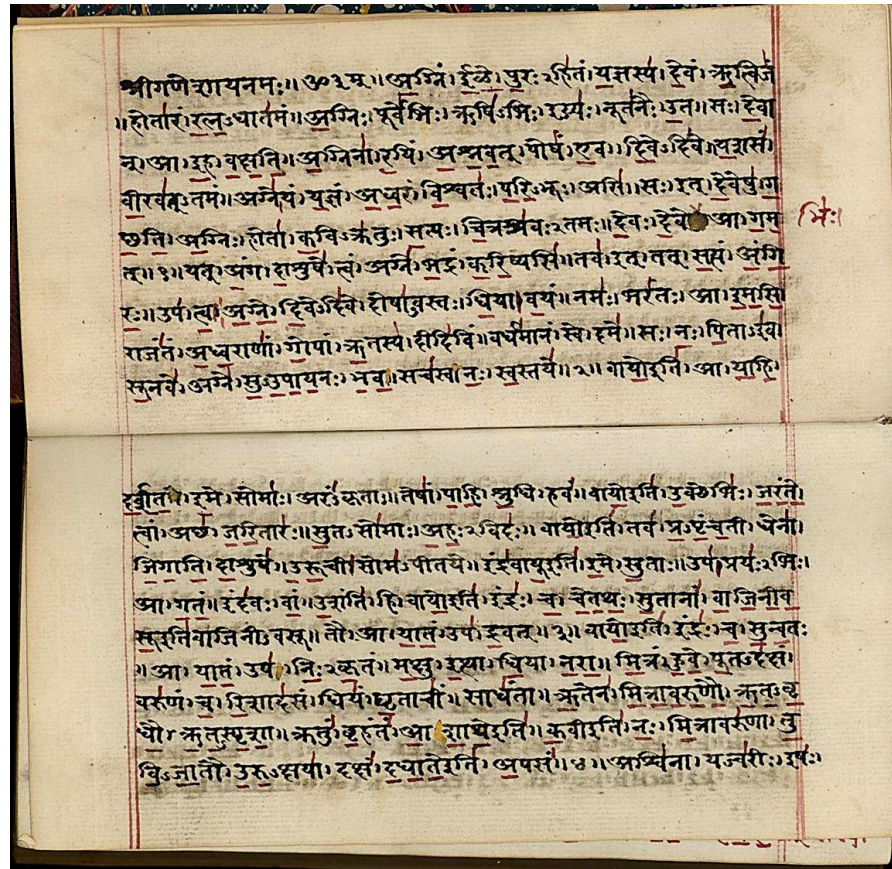 श्रीगणेशायनमः॥ ॐ३म्॥ अ॒ग्निं । ई॒ळे॒ । पु॒रः२हि॑तं । य॒ज्ञस्य॑ । दे॒वं । ऋ॒त्विजं॑
॥ होता॑रं । र॒त्न॒ऽधात॑मं॥ अ॒ग्निः । पूर्वे॑भिः । ऋषि॑ऽभिः । ईड्यः॑ । नूत॑नैः । उ॒त॥ सः । दे॒वा
न् । आ । इ॒ह । व॒क्ष॒ति॒॥ अ॒ग्निना॑ । र॒यिं । अ॒श्न॒व॒त् । पोषं॑ । ए॒व । दि॒वेऽदि॑वे॥ य॒शसं॑ ।
वी॒रव॑त्ऽतमं॥ अग्ने॑ । यं । य॒ज्ञं । अ॒ध्व॒रं । वि॒श्वतः॑ । प॒रि॒ऽभूः । असि॑॥ सः । इत् । दे॒वेषु॑ । ग॒
च्छ॒ति॒ । अ॒ग्निः । होता॑ । क॒विऽक्र॑तुः । स॒त्यः । चि॒त्रश्र॑वः२तमः॥ दे॒वः । दे॒वे आ । ग॒म॒ भिः।
त्॥ १॥ यत् । अं॒ग । दा॒शुषे॑ । त्वं । अग्ने॑ । भ॒द्रं । क॒रि॒ष्यसि॑॥ तव॑ । इत् । तत् । स॒त्यं । अं॒गि॒
रः॒॥ उप॑ । त्वा॒ । अ॒ग्ने॒ । दि॒वेऽदि॑वे । दोषा॑ऽवस्तः । धि॒या । व॒यं॥ नमः॑ । भरं॑तः । आ । इ॒म॒सि॒
राजं॑तं । अ॒ध्व॒राणां॑ । गो॒पां । ऋ॒तस्य॑ । दीदि॑विं॥ वर्ध॑मानं । स्वे । दमे॑॥ सः । नः॒ । पि॒ताऽइ॑व
सू॒नवे॑ । अग्ने॑ । सु॒ऽउ॒पा॒य॒नः । भ॒व॒॥ सच॑स्व । नः॒ । स्व॒स्तये॑॥ २॥ वायो॒इति॑ । आ । या॒हि॒ ।
द॒र्श॒त॒ । इ॒मे । सोमाः॑ । अरं॑ऽकृताः॥ तेषां॑ । पा॒हि॒ । श्रु॒धि । हवं॑॥ वायो॒इति॑ । उ॒क्थेभिः॑ । ज॒रं॒ते॒
त्वां । अच्छ॑ । ज॒रि॒तारः॑॥ सु॒तऽसो॑माः । अ॒हः२विदः॑॥ वायो॒इति॑ । तव॑ । प्र॒ऽपृं॒च॒ती । धेना॑ ।
जि॒गा॒ति॒ । दा॒शुषे॑॥ उ॒रू॒ची । सोम॑ऽपीतये॥ इंद्र॑वायू॒इति॑ । इ॒मे । सु॒ताः॥ उप॑ । प्रयः॑२भिः ।
आ । ग॒तं॥ इंद॑वः । वां॒ । उ॒शंति॑ । हि॥ वायो॒इति॑ । इंद्रः॑ । च॒ । चे॒त॒थः॒ । सु॒तानां॑ । वा॒जि॒नी॒व॒
सू॒इति॑वाजिनीऽवसू॥ तौ । आ । या॒तं॒ । उप॑ । द्र॒वत्॥ ३॥ वायो॒इति॑ । इंद्रः॑ । च॒ । सु॒न्व॒तः
॥ आ । या॒तं॒ । उप॑ । निः॒२कृ॒तं॥ म॒क्षु । इ॒त्था । धि॒या । न॒रा॒॥ मि॒त्रं । हु॒वे॒ । पू॒तऽद॑क्षं ।
वरु॑णं । च॒ । रि॒शाद॑सं । धियं॑ । घृ॒ताचीं॑ । साधं॑ता॥ ऋ॒तेन॑ । मि॒त्रा॒व॒रु॒णौ॒ । ऋ॒त॒ऽवृ॒
धौ॒ । ऋ॒त॒ऽस्पृ॒शा॒॥ क्रतुं॑ । बृ॒हंतं॑ । आ॒शा॒थे॒इति॑॥ क॒वीइति॑ । नः॒ । मि॒त्रावरु॑णा । तु॒
वि॒ऽजा॒तौ । उ॒रु॒ऽक्षया॑ । दक्षं॑ । द॒धा॒ते॒इति॑ । अ॒पसं॑॥ ४॥ अश्वि॑ना । यज्व॑रीः । इषः॑ ।